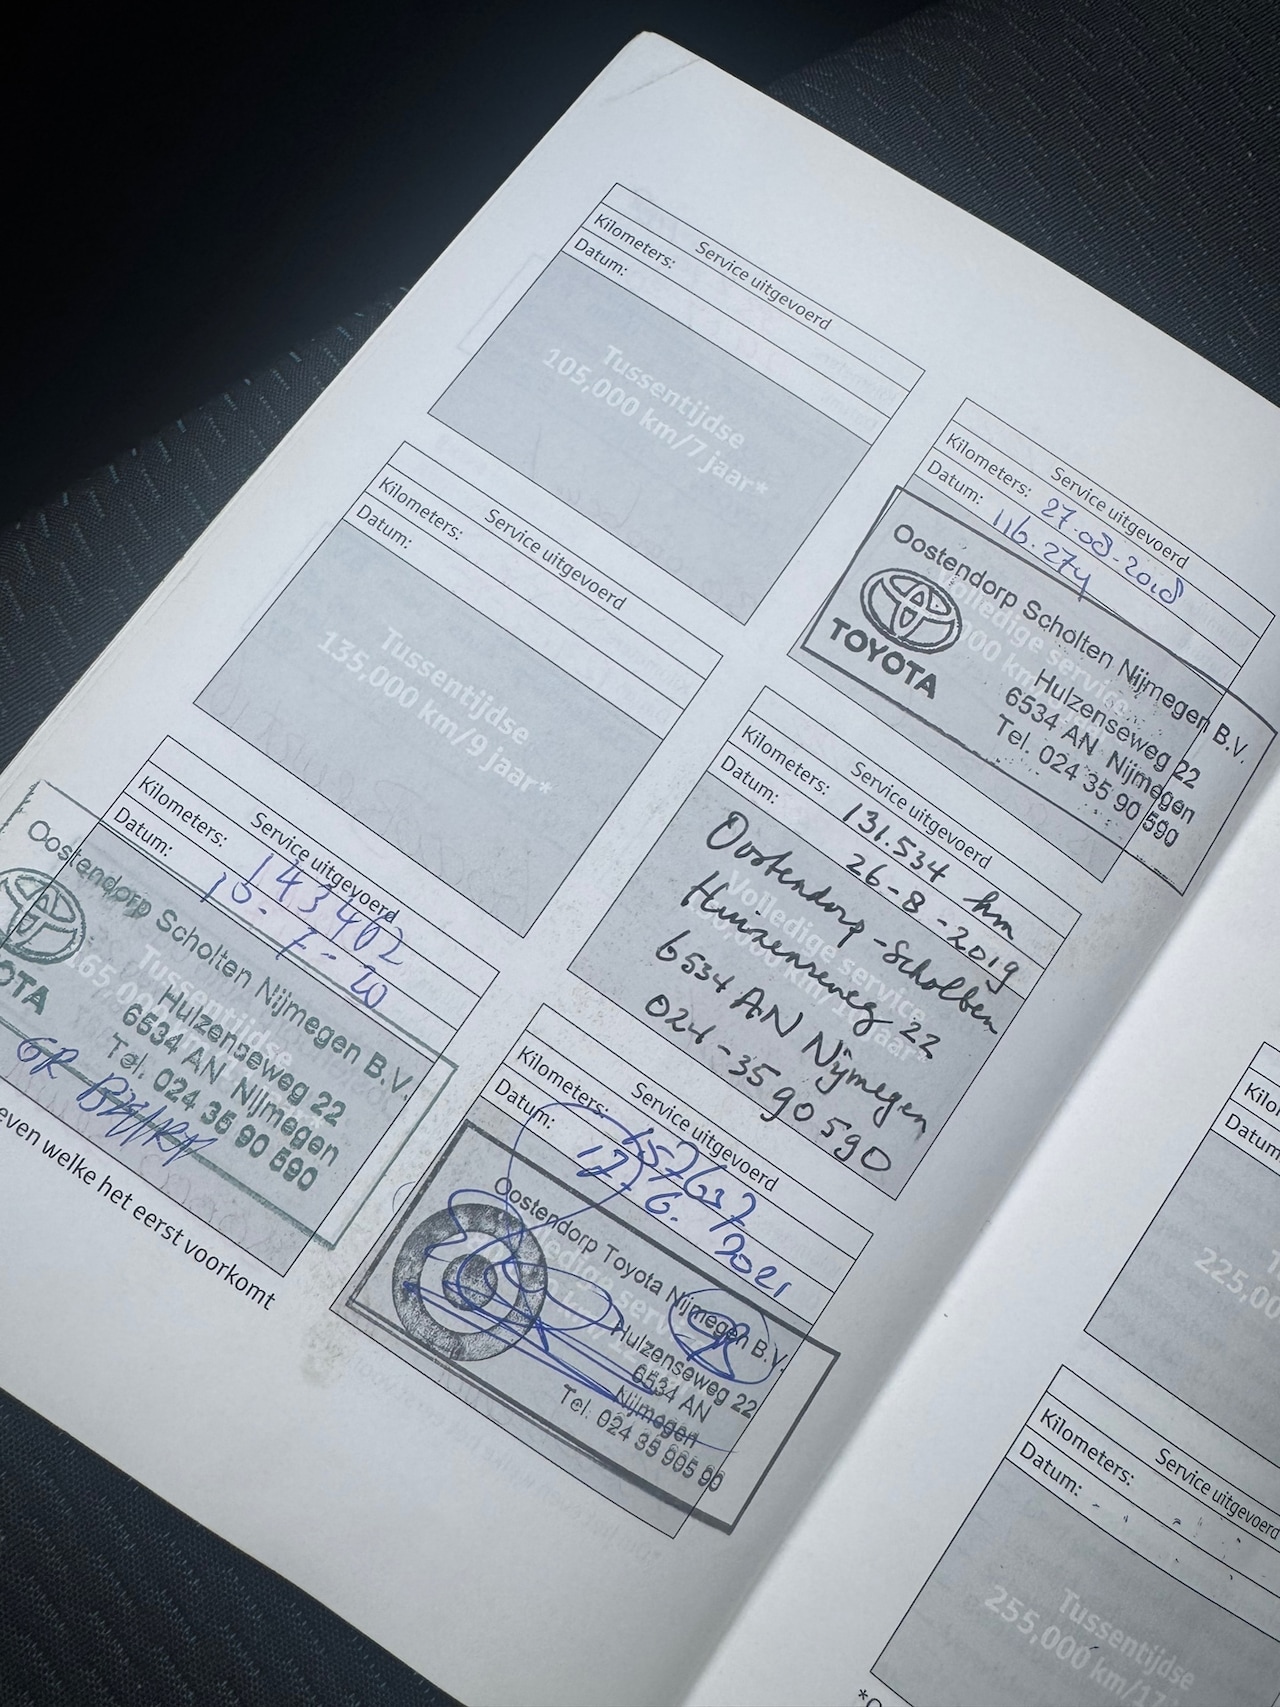 Service uitgevoerd
Kilometers:
Datum:
Tussentijdse
105,000 km/7 jaar*
Service uitgevoerd
Kilometers: 27.08.2018
Datum: 116.274
Volledige service
Oostendorp Scholten Nijmegen B.V.
Hulzenseweg 22
6534 AN Nijmegen
Tel. 024 35 90 590
TOYOTA
Service uitgevoerd
Kilometers:
Datum:
Tussentijdse
135,000 km/9 jaar*
Service uitgevoerd
Kilometers: 131.534 km
Datum: 26-8-2019
Volledige service
Oostendorp-Scholten
Huizenseweg 22
6534 AN Nijmegen
024-3590590
Service uitgevoerd
Kilometers: 143402
Datum:
Tussentijdse
Oostendorp Scholten Nijmegen B.V.
Hulzenseweg 22
6534 AN Nijmegen
Tel. 024 35 90 590
OTA
even welke het eerst voorkomt
Service uitgevoerd
Kilometers: 157637
Datum: 17-6. 2021
Oostendorp Toyota Nijmegen B.V.
Hulzenseweg 22
6534 AN
Nijmegen
Tel. 024 35 905 90
Kilo
Datum
225,00
Service uitgevoerd
Kilometers:
Datum:
Tussentijdse
255,000 km/17